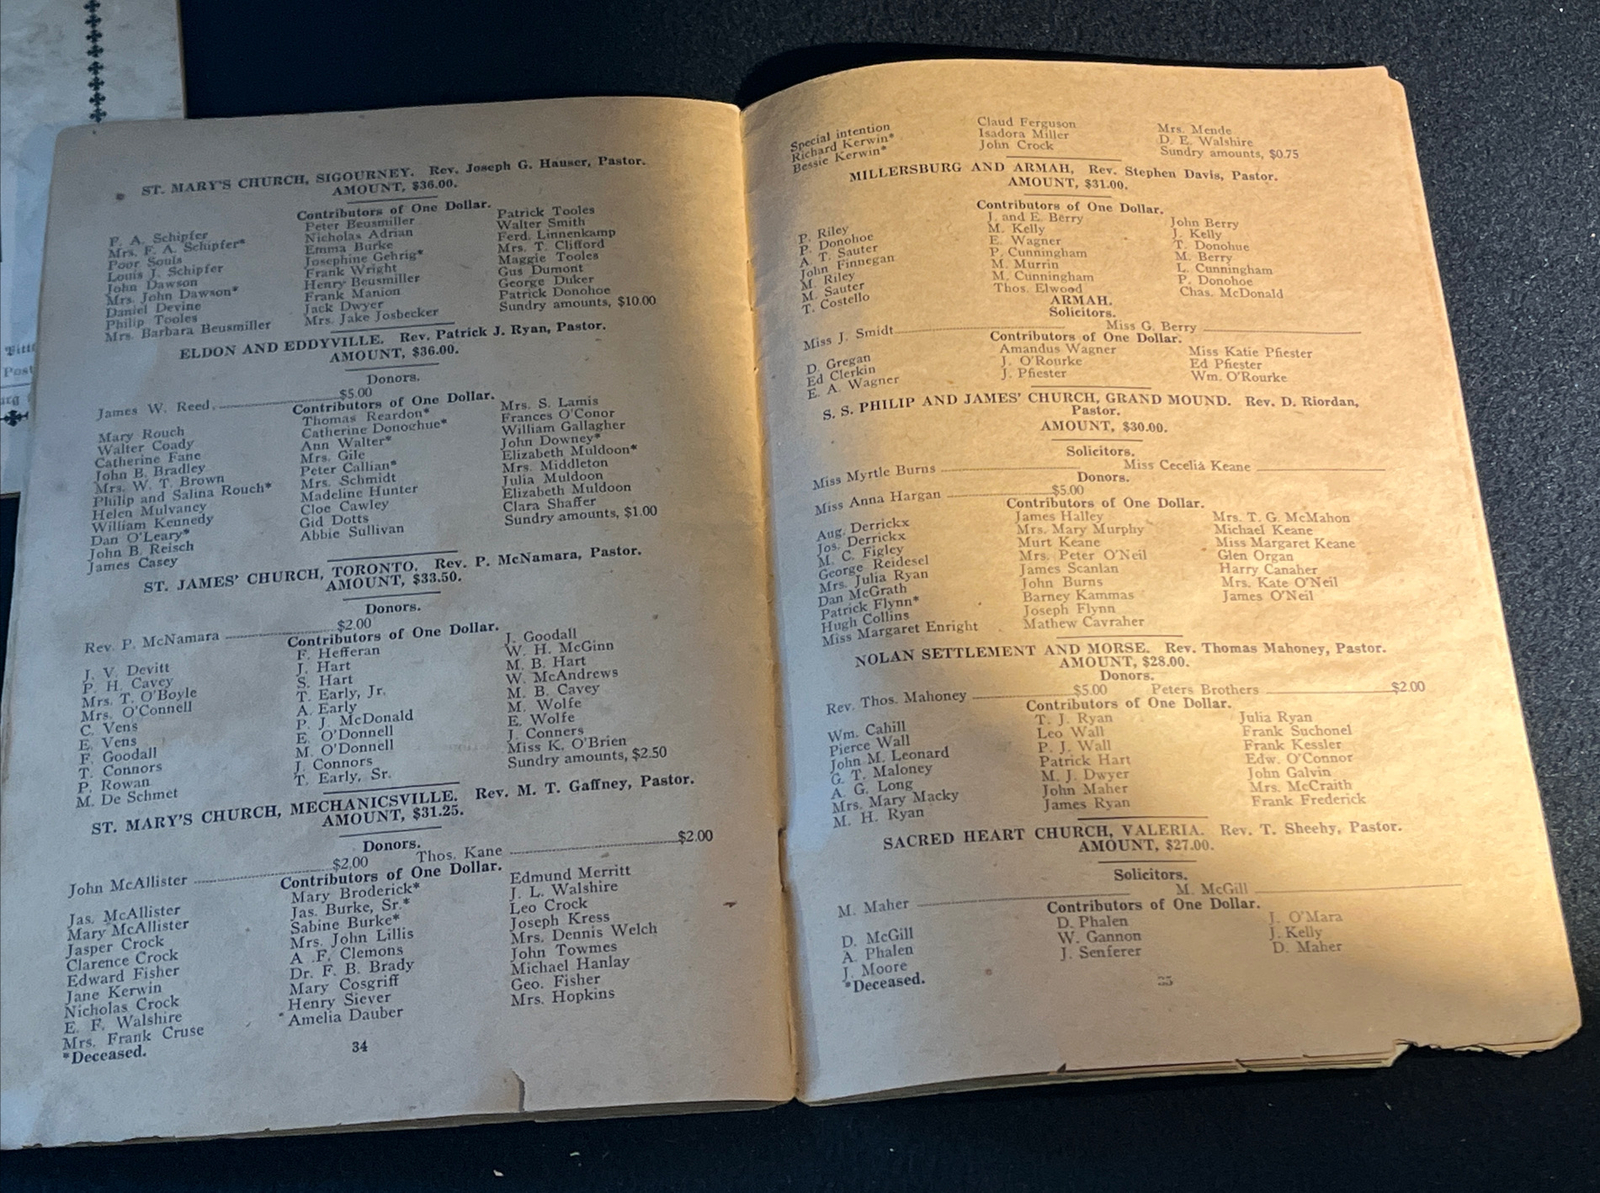 Pitts
Post
urg
ST. MARY'S CHURCH, SIGOURNEY. Rev. Joseph G. Hauser, Pastor.
AMOUNT, $36.00.
Contributors of One Dollar.
F. A. Schipfer
Mrs. F. A. Schipfer*
Poor Souls
Louis J. Schipfer
John Dawson
Mrs. John Dawson*
Daniel Devine
Philip Tooles
Mrs. Barbara Beusmiller
Peter Beusmiller
Nicholas Adrian
Emma Burke
Josephine Gehrig*
Frank Wright
Henry Beusmiller
Frank Manion
Jack Dwyer
Mrs. Jake Josbecker
Patrick Tooles
Walter Smith
Ferd. Linnenkamp
Mrs. T. Clifford
Maggie Tooles
Gus Dumont
George Duker
Patrick Donohoe
Sundry amounts, $10.00
ELDON AND EDDYVILLE. Rev. Patrick J. Ryan, Pastor.
AMOUNT, $36.00.
Donors.
James W. Reed $5.00
Contributors of One Dollar.
Mary Rouch
Walter Coady
Catherine Fane
John B. Bradley
Mrs. W. T. Brown
Philip and Salina Rouch*
Helen Mulvaney
William Kennedy
Dan O'Leary*
John B. Reisch
James Casey
Thomas Reardon*
Catherine Donoghue*
Ann Walter*
Mrs. Gile
Peter Callian*
Mrs. Schmidt
Madeline Hunter
Cloe Cawley
Gid Dotts
Abbie Sullivan
Mrs. S. Lamis
Frances O'Conor
William Gallagher
John Downey*
Elizabeth Muldoon*
Mrs. Middleton
Julia Muldoon
Elizabeth Muldoon
Clara Shaffer
Sundry amounts, $1.00
ST. JAMES' CHURCH, TORONTO. Rev. P. McNamara, Pastor.
AMOUNT, $33.50.
Donors.
Rev. P. McNamara $2.00
Contributors of One Dollar.
J. V. Devitt
P. H. Cavey
Mrs. T. O'Boyle
Mrs. O'Connell
C. Vens
E. Vens
F. Goodall
T. Connors
P. Rowan
M. De Schmet
F. Hefferan
J. Hart
S. Hart
T. Early, Jr.
A. Early
P. J. McDonald
E. O'Donnell
M. O'Donnell
J. Connors
T. Early, Sr.
J. Goodall
W. H. McGinn
M. B. Hart
W. McAndrews
M. B. Cavey
M. Wolfe
E. Wolfe
J. Conners
Miss K. O'Brien
Sundry amounts, $2.50
ST. MARY'S CHURCH, MECHANICSVILLE. Rev. M. T. Gaffney, Pastor.
AMOUNT, $31.25.
Donors.
John McAllister $2.00 Thos. Kane $2.00
Contributors of One Dollar.
Jas. McAllister
Mary McAllister
Jasper Crock
Clarence Crock
Edward Fisher
Jane Kerwin
Nicholas Crock
E. F. Walshire
Mrs. Frank Cruse
*Deceased.
Mary Broderick*
Jas. Burke, Sr.*
Sabine Burke*
Mrs. John Lillis
A .F. Clemons
Dr. F. B. Brady
Mary Cosgriff
Henry Siever
*Amelia Dauber
Edmund Merritt
J. L. Walshire
Leo Crock
Joseph Kress
Mrs. Dennis Welch
John Towmes
Michael Hanlay
Geo. Fisher
Mrs. Hopkins
34
Special intention
Richard Kerwin*
Bessie Kerwin*
Claud Ferguson
Isadora Miller
John Crock
Mrs. Mende
D. E. Walshire
Sundry amounts, $0.75
MILLERSBURG AND ARMAH, Rev. Stephen Davis, Pastor.
AMOUNT, $31.00.
Contributors of One Dollar.
P. Riley
P. Donohoe
A. T. Sauter
John Finnegan
M. Riley
M. Sauter
T. Costello
J. and E. Berry
M. Kelly
E. Wagner
P. Cunningham
M. Murrin
M. Cunningham
Thos. Elwood
John Berry
J. Kelly
T. Donohue
M. Berry
L. Cunningham
P. Donohoe
Chas. McDonald
ARMAH.
Solicitors.
Miss J. Smidt Miss G. Berry
Contributors of One Dollar.
D. Gregan
Ed Clerkin
E. A. Wagner
Amandus Wagner
J. O'Rourke
J. Pfiester
Miss Katie Pfiester
Ed Pfiester
Wm. O'Rourke
S. S. PHILIP AND JAMES' CHURCH, GRAND MOUND. Rev. D. Riordan,
Pastor.
AMOUNT, $30.00.
Solicitors.
Miss Myrtle Burns Miss Cecelia Keane
Donors.
Miss Anna Hargan $5.00
Contributors of One Dollar.
Aug. Derrickx
Jos. Derrickx
M. C. Figley
George Reidesel
Mrs. Julia Ryan
Dan McGrath
Patrick Flynn*
Hugh Collins
Miss Margaret Enright
James Halley
Mrs. Mary Murphy
Murt Keane
Mrs. Peter O'Neil
James Scanlan
John Burns
Barney Kammas
Joseph Flynn
Mathew Cavraher
Mrs. T. G. McMahon
Michael Keane
Miss Margaret Keane
Glen Organ
Harry Canaher
Mrs. Kate O'Neil
James O'Neil
NOLAN SETTLEMENT AND MORSE. Rev. Thomas Mahoney, Pastor.
AMOUNT, $28.00.
Donors.
Rev. Thos. Mahoney $5.00 Peters Brothers $2.00
Contributors of One Dollar.
Wm. Cahill
Pierce Wall
John M. Leonard
G. T. Maloney
A. G. Long
Mrs. Mary Macky
M. H. Ryan
T. J. Ryan
Leo Wall
P. J. Wall
Patrick Hart
M. J. Dwyer
John Maher
James Ryan
Julia Ryan
Frank Suchonel
Frank Kessler
Edw. O'Connor
John Galvin
Mrs. McCraith
Frank Frederick
SACRED HEART CHURCH, VALERIA. Rev. T. Sheehy, Pastor.
AMOUNT, $27.00.
Solicitors.
M. Maher M. McGill
Contributors of One Dollar.
D. McGill
A. Phalen
J. Moore
*Deceased.
D. Phalen
W. Gannon
J. Senferer
J. O'Mara
J. Kelly
D. Maher
35